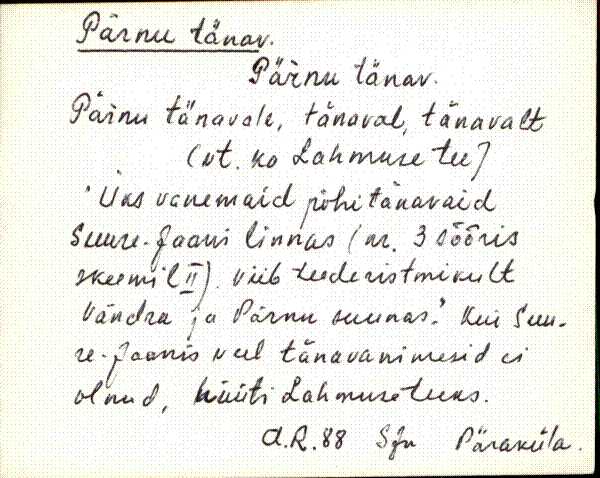 Pärnu tänav.
Pärnu tänav.
Pärnu tänavale, tänaval, tänavalt
(vt. ka Lahmuse tee)
"Üks vanemaid põhitänavaid
Suure-Jaani linnas (nr. 3 sõõris
skeemil II). viib teederistmikult
Vändra ja Pärnu suunas." Kui Suu-
re-Jaanis veel tänavanimesid ei
olnud, hüüti Lahmuseteeks.
A.R. 88 SJn Päraküla.